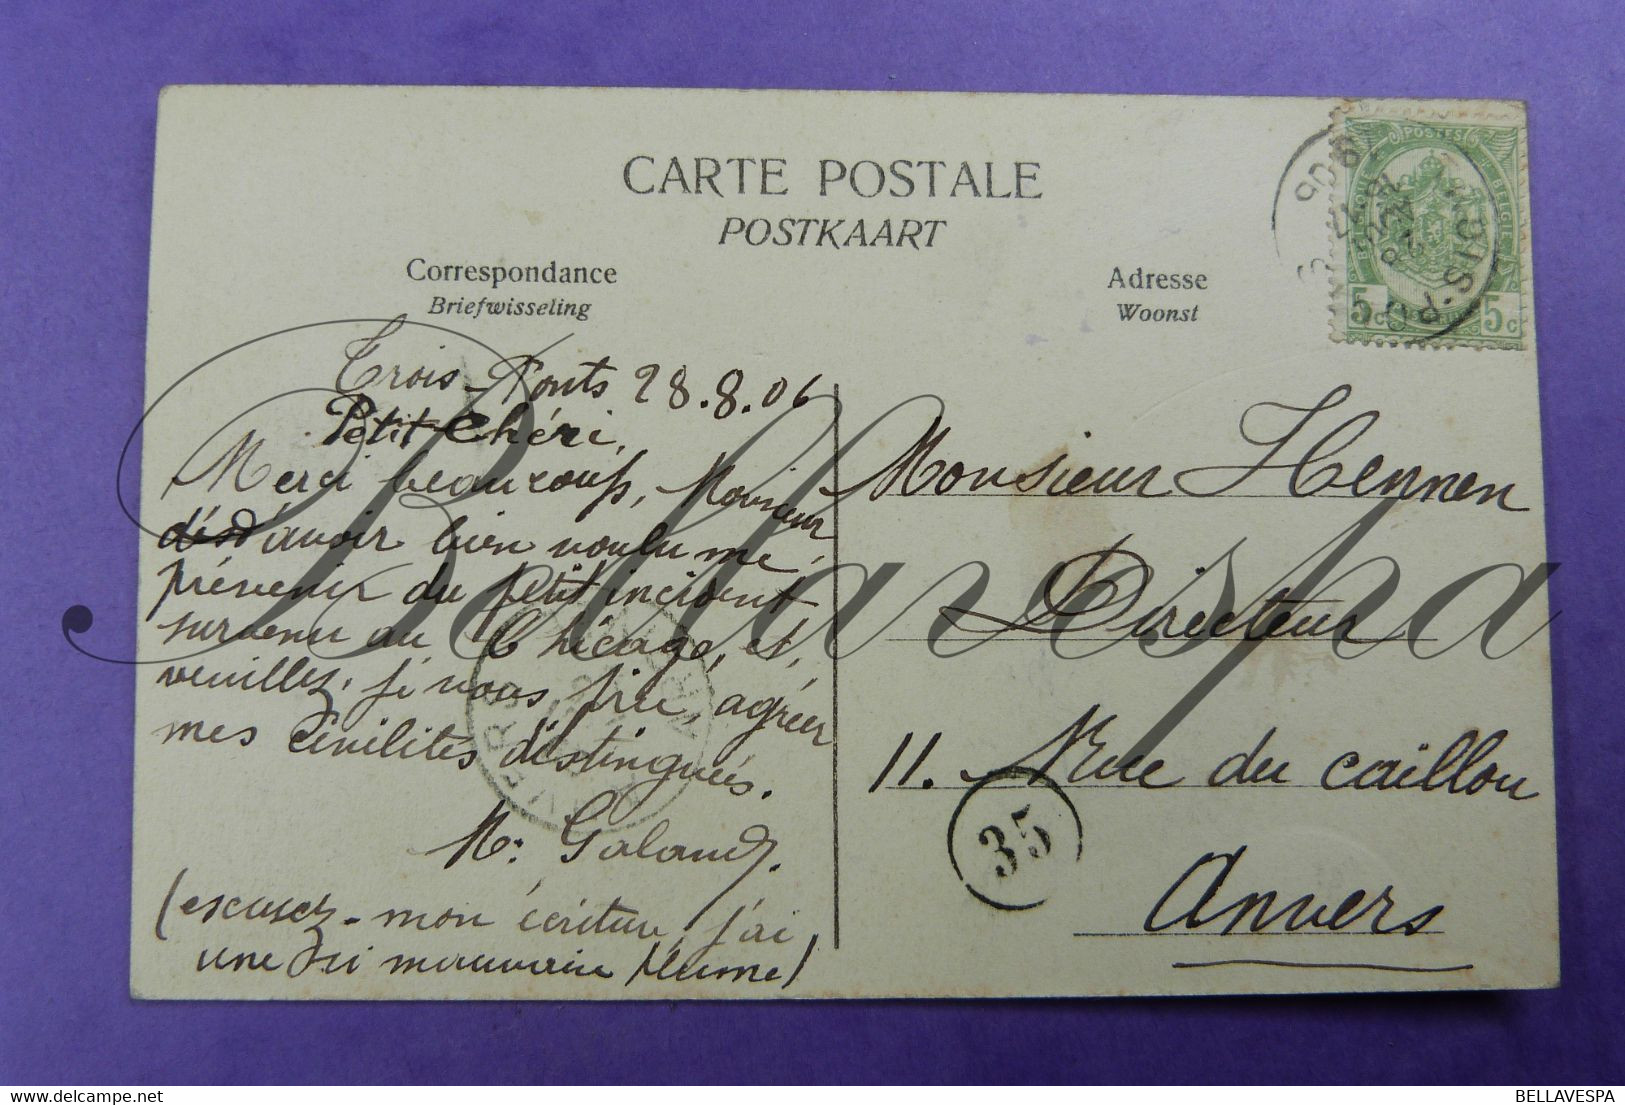 CARTE POSTALE
POSTKAART
Correspondance
Briefwisseling
Adresse
Woonst
POSTES
BELGIQUE
BELGIE
5c 5c
Trois-Ponts 28.8.06
Petit Chéri,
Merci beaucoup, Monsieur,
d'avoir bien voulu me
prévenir du petit incident
survenu au Chicago, et,
veuillez, je vous prie, agréer
mes civilités distinguées.
M. Galand.
(excusez-mon écriture, j'ai
une si mauvaise plume)
Monsieur Hennen
Directeur
11. Rue du caillou
Anvers
35
Bellavespa
BELLAVESPA